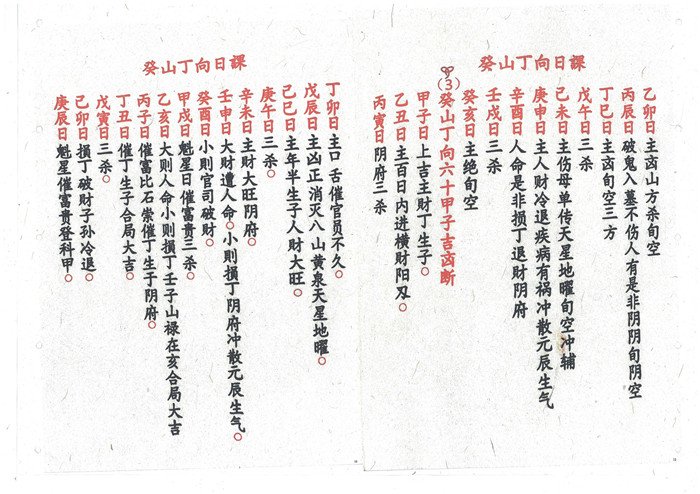 癸山丁向日課
乙卯日主卤山方杀旬空
丙辰日破鬼入墓不伤人有是非阴阴旬阴空
丁巳日主卤旬空三方
戊午日三杀
己未日主伤母单传天星地曜旬空冲辅
庚申日主人财冷退疾病有祸冲散元辰生气
辛酉日人命是非损丁退财阴府
壬戌日三杀
癸亥日主绝旬空
(3)癸山丁向六十甲子吉卤断
甲子日上吉主财丁生子。
乙丑日主百日内进横财阳刄。
丙寅日阴府三杀
癸山丁向日課
丁卯日主口舌催官员不久。
戊辰日主凶正消灭八山黄泉天星地曜。
己巳日主年半生子人财大旺。
庚午日三杀。
辛未日主财大旺阴府。
壬申日大财遭人命。小则損丁阴府冲散元辰生气。
癸酉日小则官司破财。
甲戌日魁星日催富贵三杀。
乙亥日大则人命小则损丁壬子山禄在亥合局大吉
丙子日催富比石崇催丁生于阴府。
丁丑日催丁生子合局大吉。
戊寅日三杀。
己卯日损丁破财子孙冷退。
庚辰日魁星催富贵登科甲。